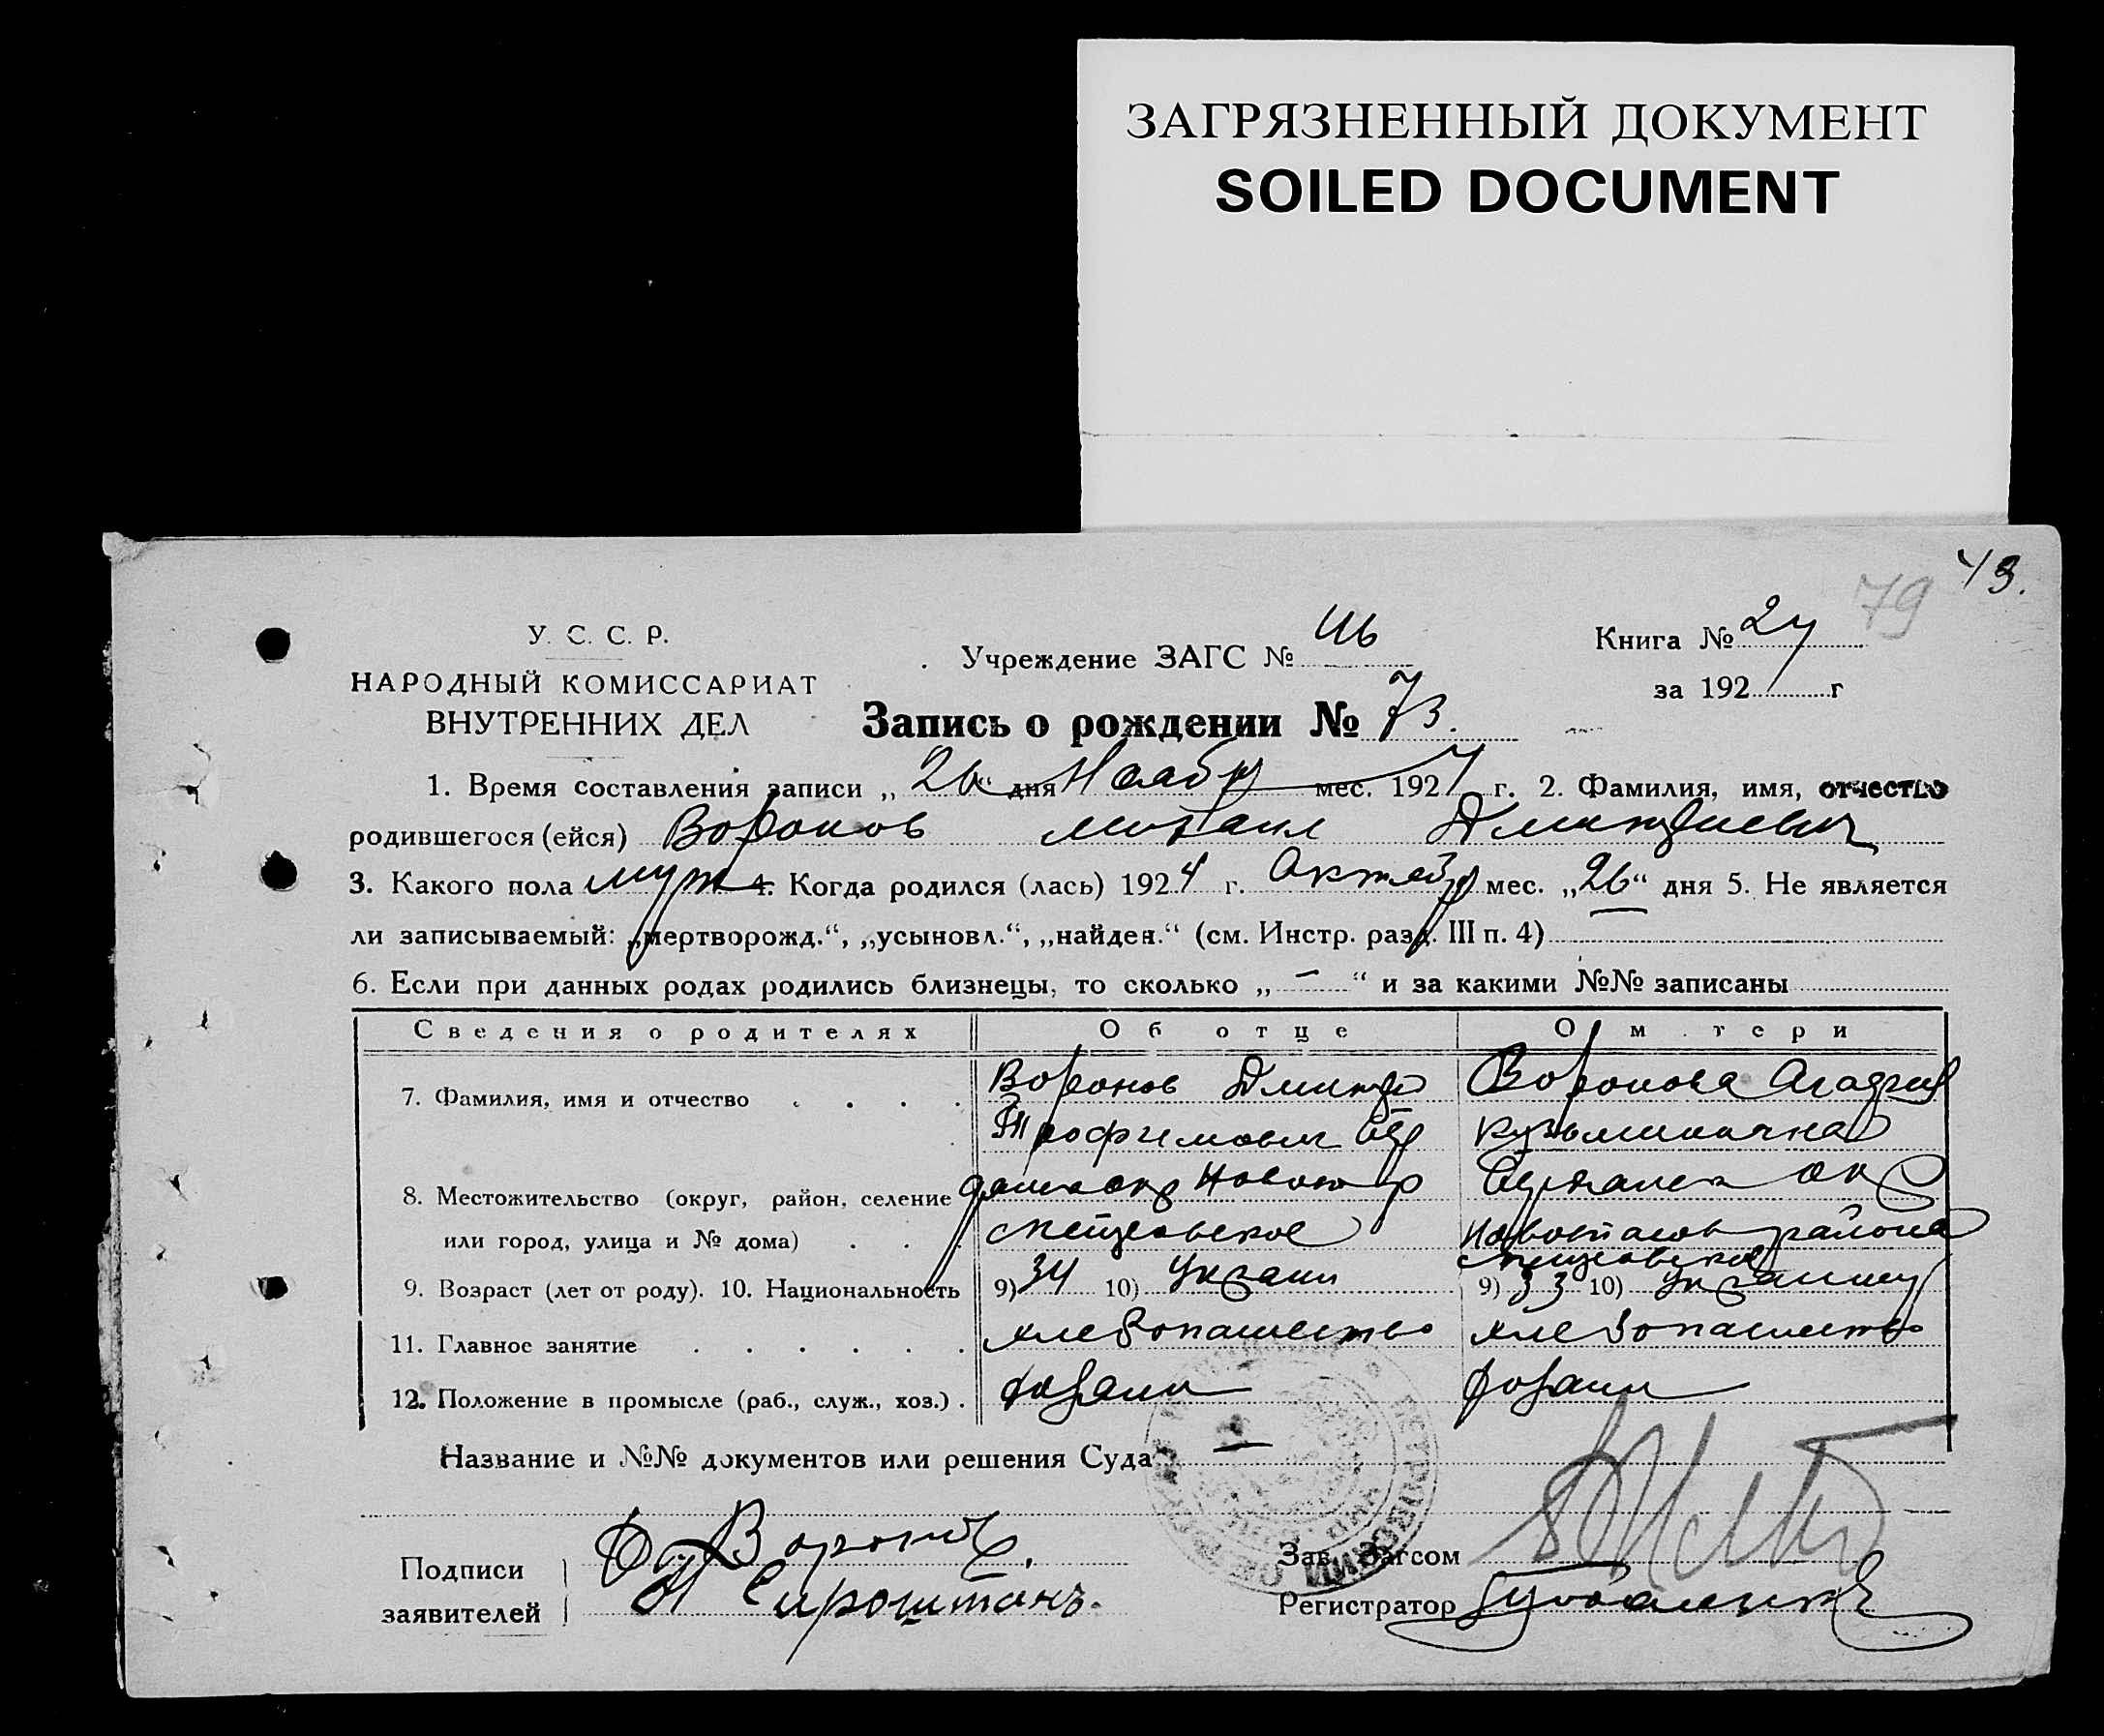 ЗАГРЯЗНЕННЫЙ ДОКУМЕНТ
SOILED DOCUMENT
43.
79
У. С. С. Р.
НАРОДНЫЙ КОМИССАРИАТ
ВНУТРЕННИХ ДЕЛ
Учреждение ЗАГС №
Книга № 24
за 192 г
Запись о рождении № 73.
1. Время составления записи „26“ дня Ноабр мес. 1924 г. 2. Фамилия, имя, отчество
родившегося (ейся) Воронов Михаил Дмитриевич
3. Какого пола муж 4. Когда родился (лась) 1924 г. Октябр мес. „26“ дня 5. Не является
ли записываемый: „мертворожд.“, „усыновл.“, „найден.“ (см. Инстр. разд. III п. 4)
6. Если при данных родах родились близнецы, то сколько „—“ и за какими №№ записаны
Сведения о родителях Об отце О м тери
7. Фамилия, имя и отчество Воронов Дмитр Трофимович Воронова Кузьминична
8. Местожительство (округ, район, селение
или город, улица и № дома) района
9. Возраст (лет от роду). 10. Национальность 9) 34 10) Украин 9) 33 10) Украинц
11. Главное занятие хлебопашество хлебопашество
12. Положение в промысле (раб., служ., хоз.)
Название и №№ документов или решения Суда —
Подписи
заявителей
Воронов.
Сироштанъ.
Зав. Загсом
Регистратор